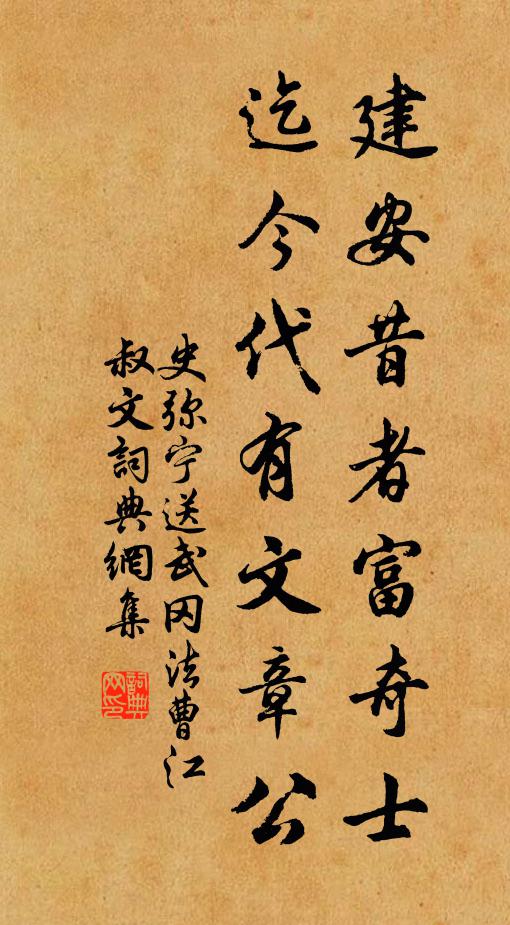 建安昔者富奇士
迄今代有文章公
史弥宁送武冈法曹江
叔文詞典網集
詞典網印